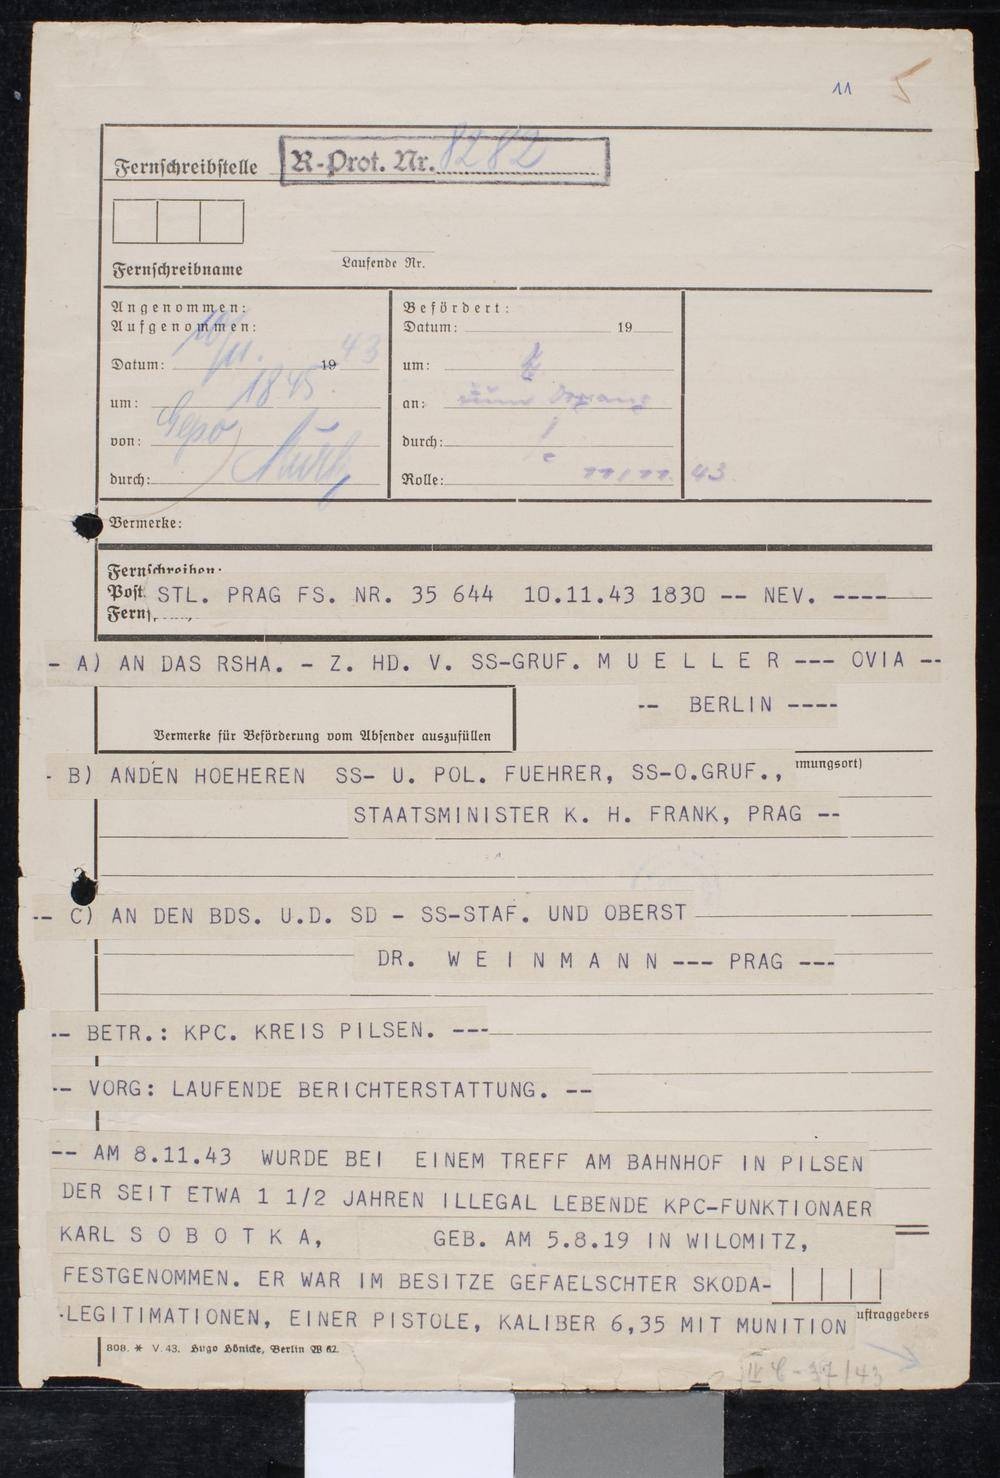 11 5
Fernschreibstelle R-Prot. Nr. 8282
Fernschreibname
Laufende Nr.
Angenommen:
Aufgenommen:
Datum: 10/11. 19 43
um: 18 45
von: Gepo
durch:
Befördert:
Datum: 19
um:
an: zum Vorgang
durch:
Rolle: 11/11. 43
Vermerke:
Fernschreiben:
Post
Fern
STL. PRAG FS. NR. 35 644 10.11.43 1830 -- NEV. ----
- A) AN DAS RSHA. - Z. HD. V. SS-GRUF. M U E L L E R --- OVIA --
-- BERLIN ----
Vermerke für Beförderung vom Absender auszufüllen
mmungsort)
- B) ANDEN HOEHEREN SS- U. POL. FUEHRER, SS-O.GRUF.,
STAATSMINISTER K. H. FRANK, PRAG --
-- C) AN DEN BDS. U.D. SD - SS-STAF. UND OBERST
DR. W E I N M A N N --- PRAG ---
-- BETR.: KPC. KREIS PILSEN. ---
-- VORG: LAUFENDE BERICHTERSTATTUNG. --
-- AM 8.11.43 WURDE BEI EINEM TREFF AM BAHNHOF IN PILSEN
DER SEIT ETWA 1 1/2 JAHREN ILLEGAL LEBENDE KPC-FUNKTIONAER
KARL S O B O T K A, GEB. AM 5.8.19 IN WILOMITZ,
FESTGENOMMEN. ER WAR IM BESITZE GEFAELSCHTER SKODA-
-LEGITIMATIONEN, EINER PISTOLE, KALIBER 6,35 MIT MUNITION
uftraggebers
808. * V. 43. Hugo Hönicke, Berlin W 62.
IV C - 37/43